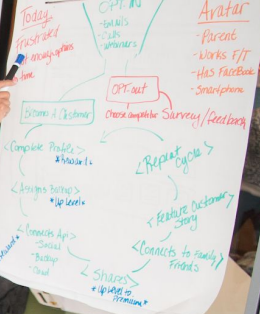 Today
Frustrated
options
time
OPT.IN
- Emails
- Calls
- Webinars
Avatar
- Parent
- Works F/T
- Has FaceBook
- Smartphone
OPT-out
choose competitor
Survey/feedback
Become a Customer
<Complete Profile>
*Reward*
<Assigns Backup>
*Up Level*
<Connects Ap>
- Social
- Backup
- Cloud
<Shares>
*Up Level to
Premium*
<Connects to Family/
Friends>
<Feature Customer>
Story
<Repeat
Cycle>